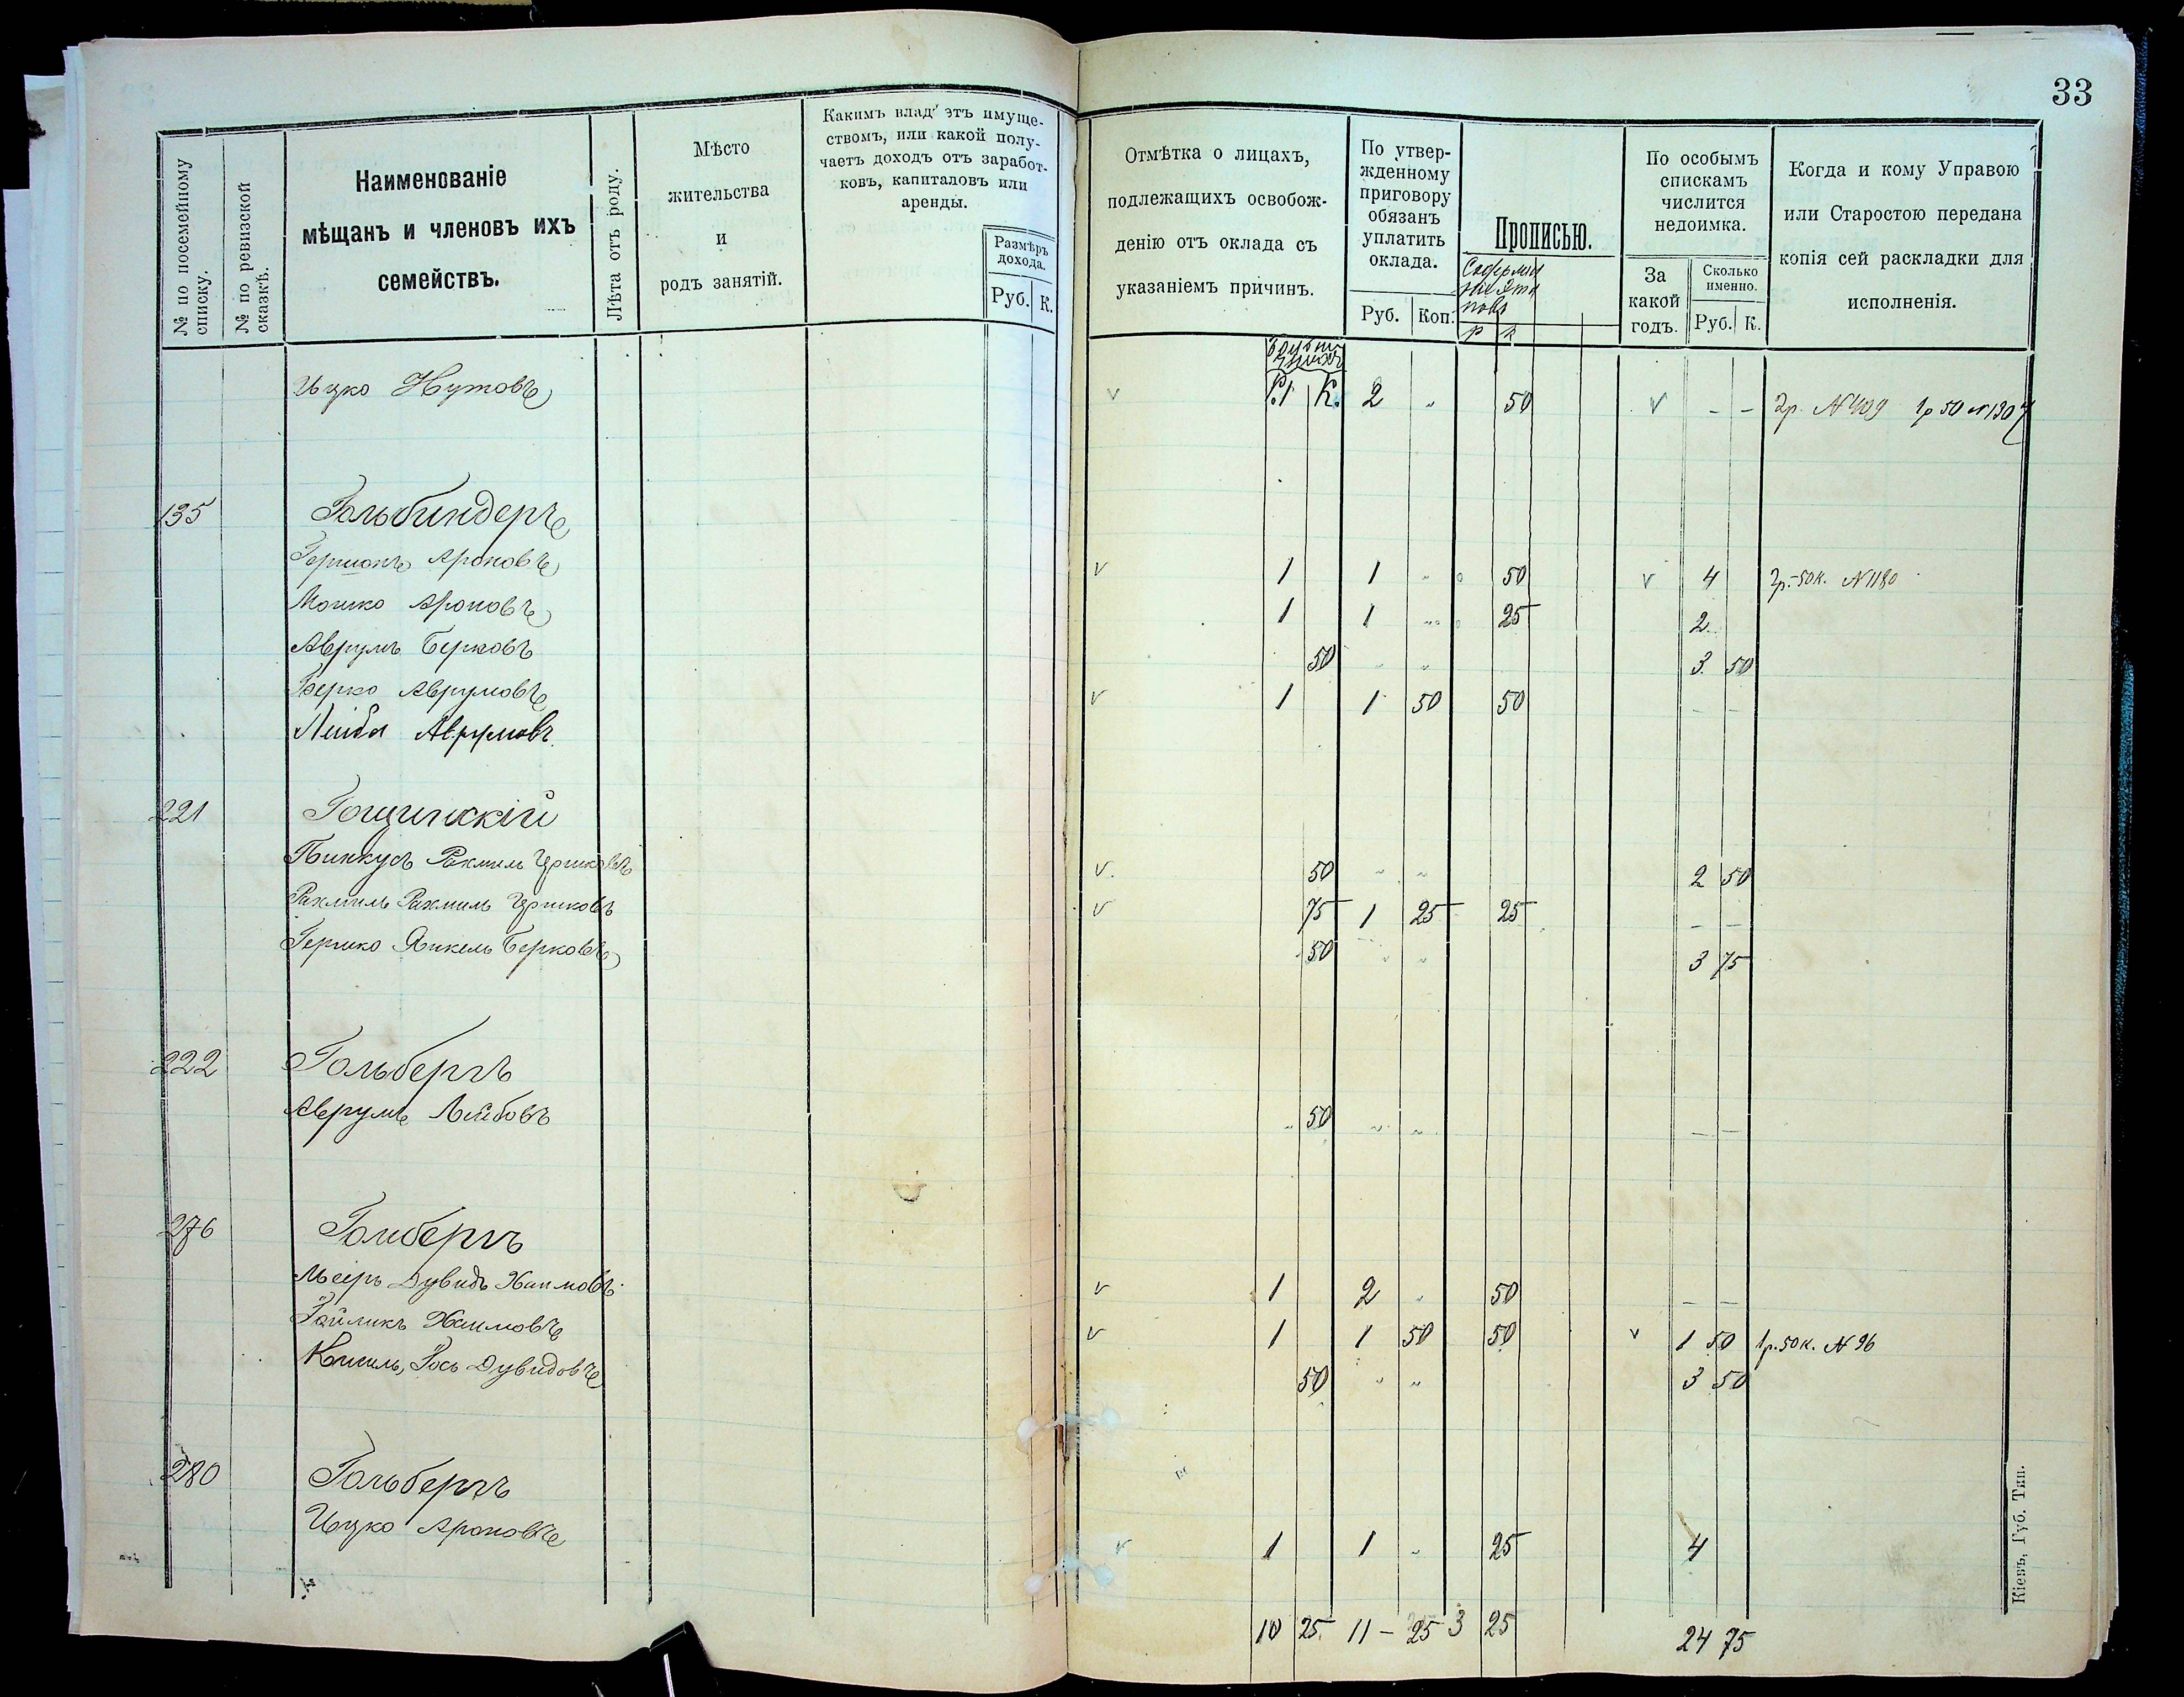 33
№ по посемейному списку.
№ по ревизской сказкѣ.
Наименованіе
мѣщанъ и членовъ ихъ
семействъ.
Лѣта отъ роду.
Мѣсто
жительства
и
родъ занятій.
Какимъ влад етъ имуще-
ствомъ, или какой полу-
чаетъ доходъ отъ заработ-
ковъ, капиталовъ или
аренды.
Размѣръ
дохода.
Руб. К.
Отмѣтка о лицахъ,
подлежащихъ освобож-
денію отъ оклада съ
указаніемъ причинъ.
По утвер-
жденному
приговору
обязанъ
уплатить
оклада.
Руб. Коп.
Прописью.
р к
По особымъ
спискамъ
числится
недоимка.
За
какой
годъ.
Сколько
именно.
Руб. К.
Когда и кому Управою
или Старостою передана
копія сей раскладки для
исполненія.
Р. К.
Ицко Нутовъ 2 " 50 - - 2р. №409 1р 50 №1307
135 Гольбиндеръ
Гершонъ Ароновъ 1 1 " 50 4 2р.-50к. №1180
Мошко Ароновъ 1 1 " 25 2
Аврумъ Берковъ 50 " " 3 50
Берко Аврумовъ 1 1 50 50 - -
Лейба Аврумовъ
221 Гощинскій
Пинкусъ Рахмиль Гершковъ 50 " " 2 50
Рахмиль Рахмиль Гершковъ 75 1 25 25 - -
Гершко Янкель Берковъ 50 " " 3 75
222 Гольбергъ
Аврумъ Лейбовъ " 50 " " - -
276 Гомбергъ
Мееръ Дувидъ Хаимовъ 1 2 " 50 - -
Гойликъ Хаимовъ 1 1 50 50 1 50 1р.50к. №96
Кисиль, Iось Дувидовъ 50 " " 3 50
280 Гольбергъ
Ицко Ароновъ 1 1 " 25 4
10 25 11 - 25 3 25 24 75
Кіевъ, Губ. Тип.